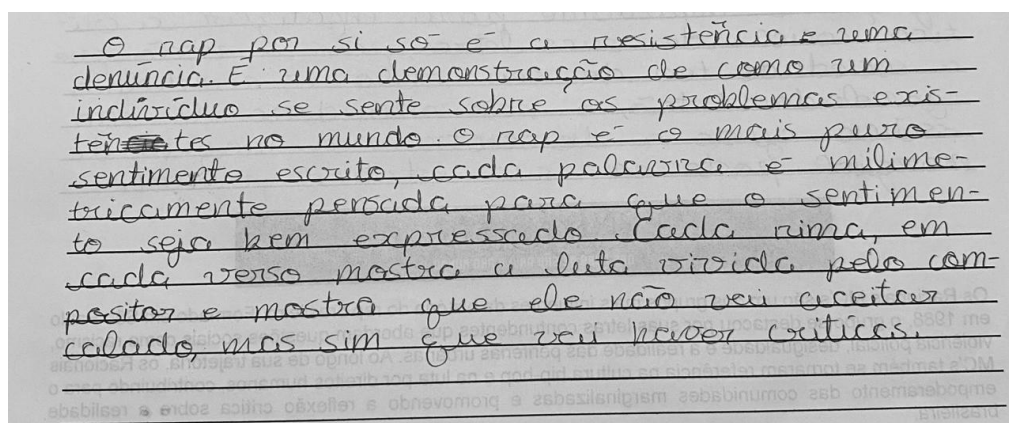 O rap por si só é a resistência e uma
denúncia. É uma demonstração de como um
indivíduo se sente sobre os problemas exis-
tentes no mundo. O rap é o mais puro
sentimento escrito, cada palavra é milime-
tricamente pensada para que o sentimen-
to seja bem expressado. Cada rima, em
cada verso mostra a luta vivida pelo com-
positor e mostra que ele não vai aceitar
calado, mas sim que vai haver críticas.